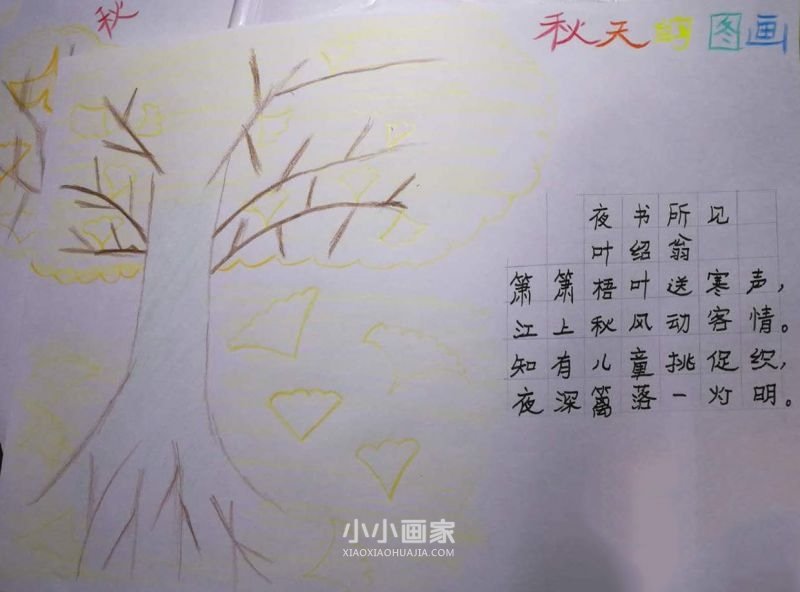 秋
秋天的图画
夜书所见
叶绍翁
箫箫梧叶送寒声，
江上秋风动客情。
知有儿童挑促织，
夜深篱落一灯明。
小小画家
XIAOXIAOHUAJIA.COM